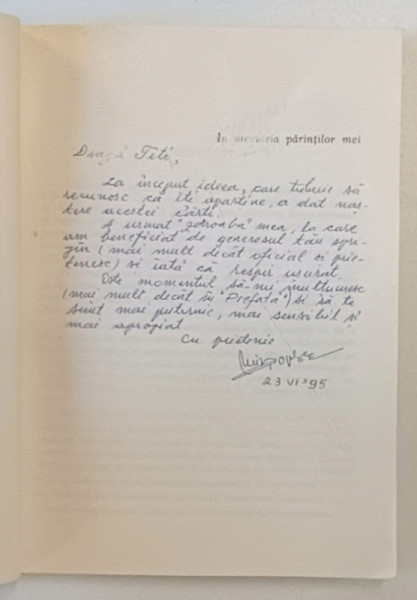 In memoria părinților mei
Dragă Titi,
La început ideea, care trebuie să
recunosc că îți aparține, a dat naș-
tere acestei cărți.
A urmat "zdroaba" mea, la care
am beneficiat de generosul tău spri-
jin (mai mult decât oficial și prie-
tenesc) și iată că respir ușurat.
Este momentul să-ți mulțumesc
(mai mult decât în "Prefață") și să te
simt mai puternic, mai sensibil și
mai apropiat
Cu prietenie
23 VI '95